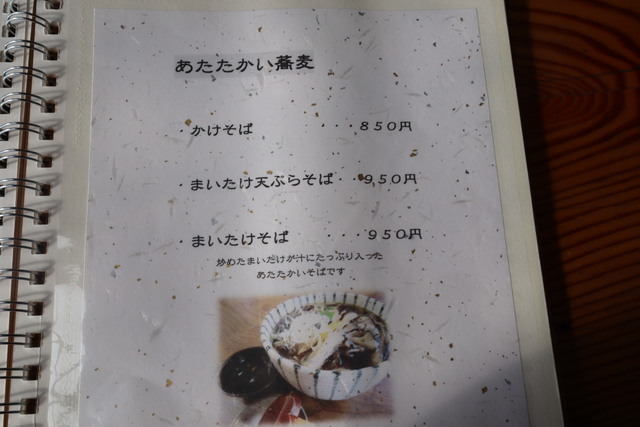 あたたかい蕎麦
・かけそば ・・・８５０円
・まいたけ天ぷらそば・・９５０円
・まいたけそば ・・・９５０円
炒めたまいたけが汁にたっぷり入った
あたたかいそばです